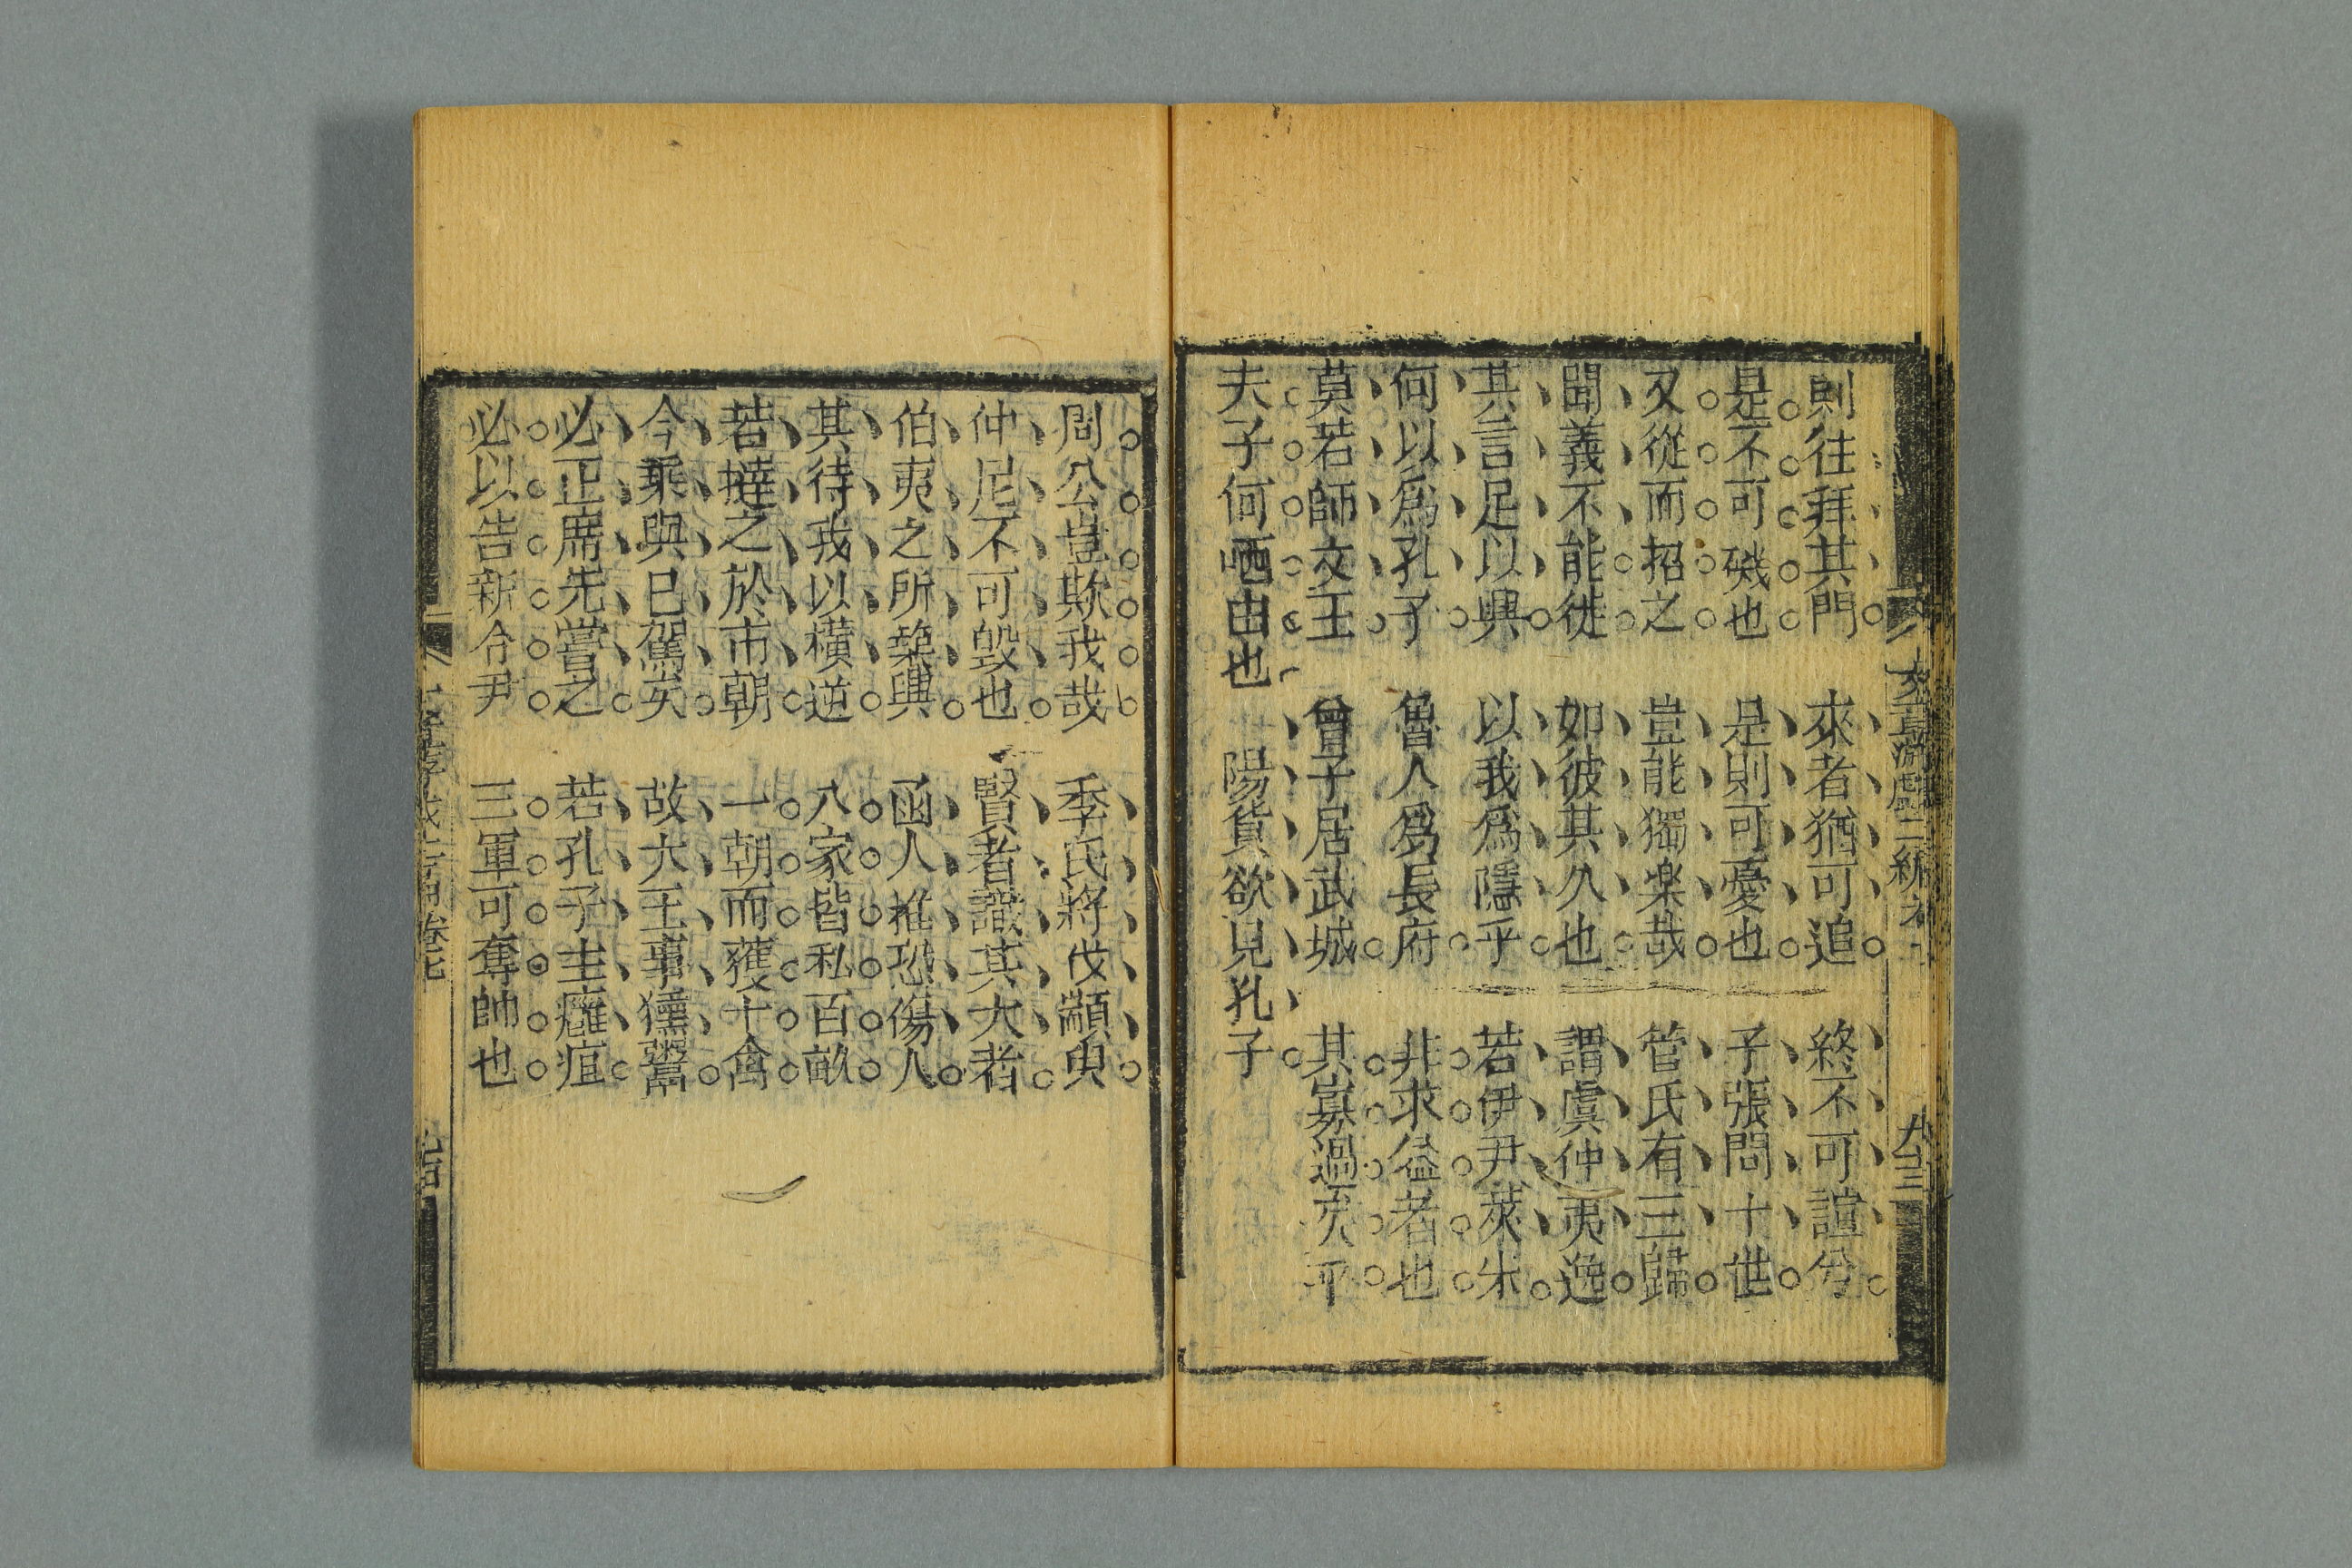 則往拜其門　來者猶可追　終不可諠兮
是不可磯也　是則可憂也　子張問十世
又從而招之　豈能獨樂哉　管氏有三歸
聞義不能徙　如彼其久也　謂虞仲夷逸
其言足以興　以我爲隱乎　若伊尹萊朱
何以爲孔子　魯人爲長府　非求益者也
莫若師文王　曾子居武城　其寡過矣乎
夫子何哂由也　陽貨欲見孔子
周公豈欺我哉　季氏將伐顓臾
仲尼不可毀也　賢者識其大者
伯夷之所築與　函人惟恐傷人
其待我以橫逆　八家皆私百畝
若撻之於市朝　一朝而獲十禽
今乘輿已駕矣　故大王事獯鬻
必正席先嘗之　若孔子主癰疽
必以告新令尹　三軍可奪帥也